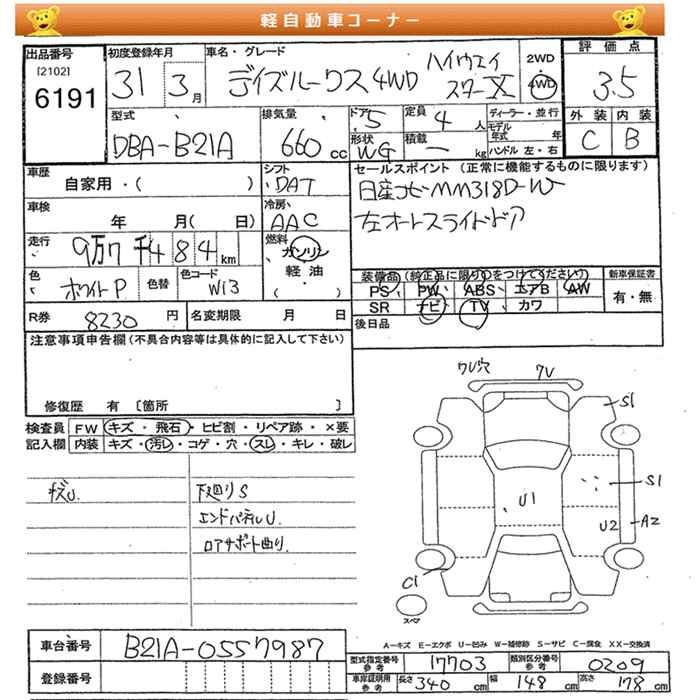 軽自動車コーナー
出品番号 初度登録年月 車名・グレード 2WD 評価点
[2102] 6191 31 3月 デイズルークス4WD ハイウェイスターX 4WD 3.5
型式 排気量 ドア 5 定員 4人 ディーラー・並行 外装 内装
DBA-B21A 660cc 形状 WG 積載 ー kg モデル年式 年 ハンドル 左・右 C B
車歴 シフト セールスポイント (正常に機能するものに限ります)
自家用・( ) DAT 日産ナビMM318D-W
車検 冷房 左オートスライドドア
年 月( 日) AAC
走行 燃料
9万7千484km ガソリン 軽油 ( ) 装備品 (純正品に限り○をつけてください) 新車保証書
色 色替 色コード PS PW ABS エアB AW 有・無
ホワイトP W13 SR ナビ TV カワ
R券 8230円 名変期限 月 日 後日品
注意事項申告欄(不具合内容等は具体的に記入して下さい)
修復歴 有 [箇所 ]
検査員 FW キズ・飛石・ヒビ割・リペア跡・×要
記入欄 内装 キズ・汚レ・コゲ・穴・スレ・キレ・破レ
キズU. 下廻りS
エンドパネルU.
ロアサポート曲り.
ワレ穴 ワレ
S1
S1
U1
U2 A2
C1
スペア
車台番号 B21A-0557987
登録番号
A-キズ E-エクボ U-凹み W-補修跡 S-サビ C-腐食 XX-交換済
型式指定番号 参考 17703 類別区分番号 参考 0209
車庫証明用 参考 長さ 340cm 幅 148cm 高さ 178cm